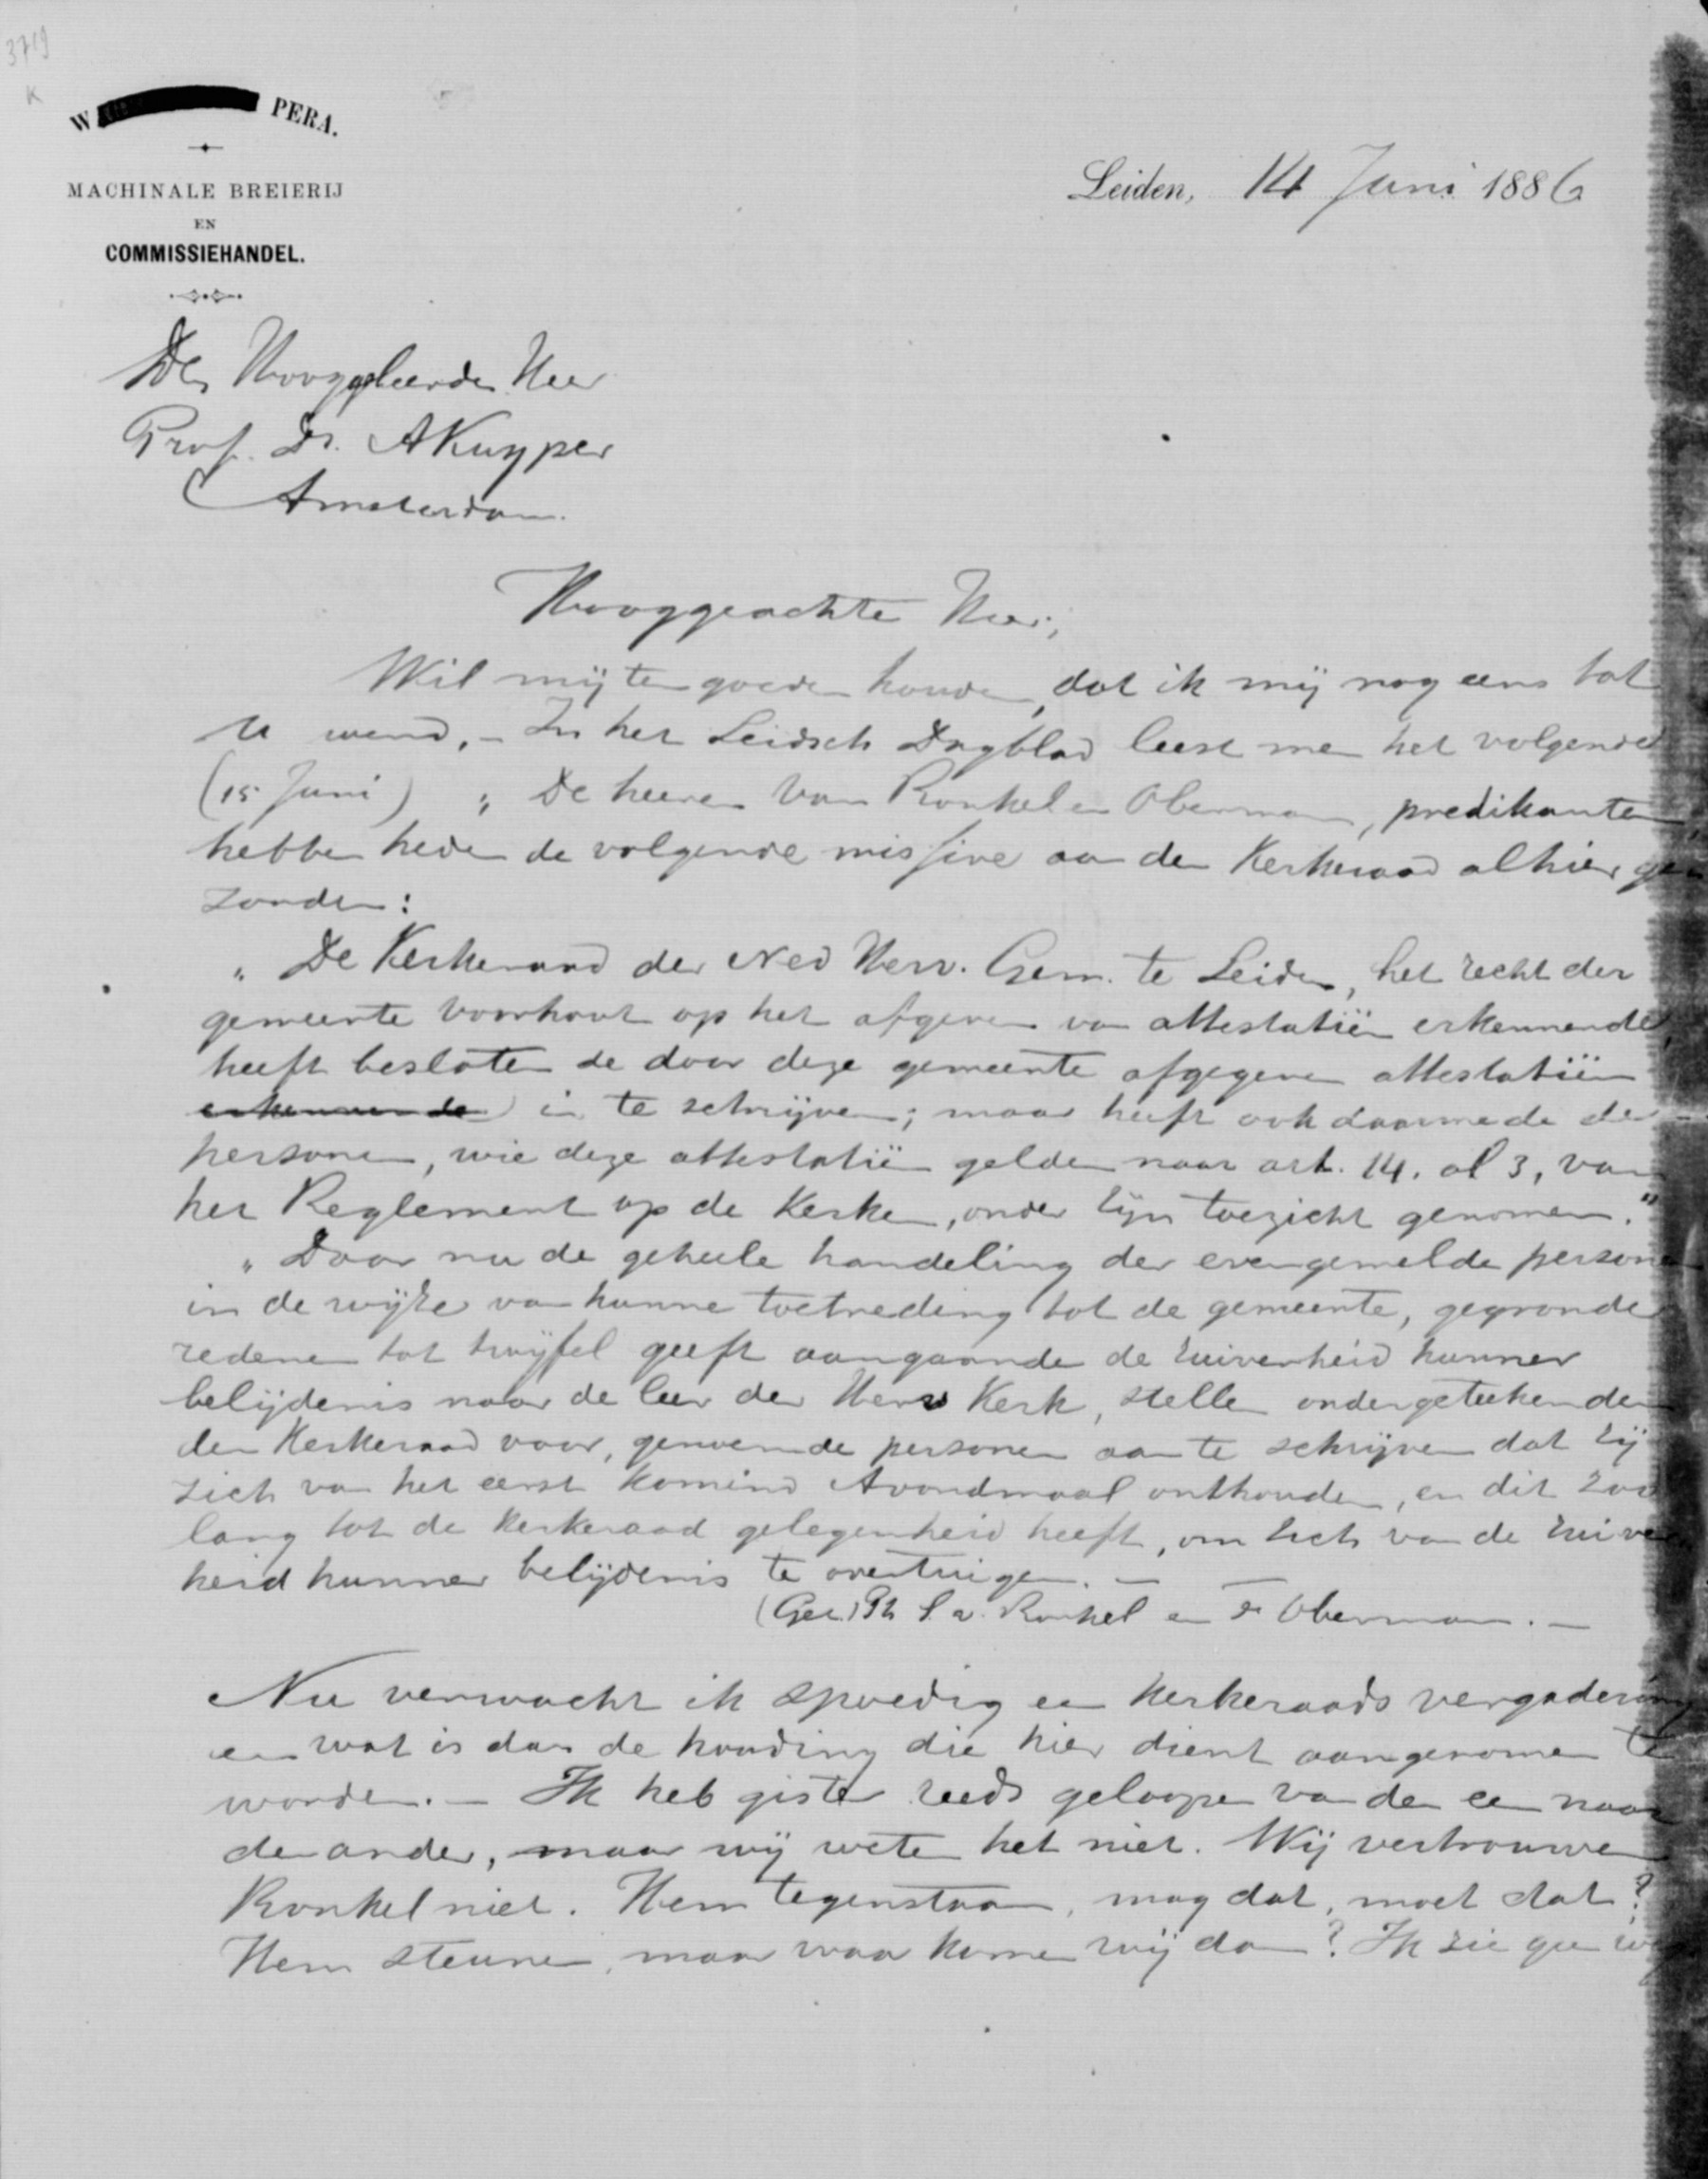 3719
K
W PERA.
MACHINALE BREIERIJ
EN
COMMISSIEHANDEL.
Leiden, 14 Juni 1886
Den Hooggeleerden Heer
Prof. Dr. A Kuyper
Amsterdam.
Hooggeachte Heer,
Wil mij ten goeden houden, dat ik mij nog eens tot
U wend. – In het Leidsch Dagblad leest men het volgende
(15 Juni) „ De heeren van Ronkel en Oberman, predikanten,
hebben heden de volgende missive aan den Kerkeraad alhier ge
zonden:
„ De Kerkeraad der Ned Herv. Gem. te Leiden, het recht der
gemeente Voorhout op het afgeven van attestatiën erkennende,
heeft besloten de door deze gemeente afgegeven attestatiën
erkennende in te schrijven; maar heeft ook daarmede de
personen, wie deze attestatiën gelden naar art. 14. al 3, van
het Reglement op de Kerken, onder zijn toezicht genomen."
„ Daar nu de geheele handeling der evengemelde personen
in de wijze van hunne toetreding tot de gemeente, gegronde
redenen tot twijfel geeft aangaande de zuiverheid hunner
belijdenis naar de leer der Herv Kerk, stellen ondergeteekenden
den Kerkeraad voor, genoemde personen aan te schrijven dat zij
zich van het eerst komend Avondmaal onthouden, en dit zoo
lang tot de Kerkeraad gelegenheid heeft, om zich van de zuiver
heid hunner belijdenis te overtuigen. –
(Get.) Ph S. v. Ronkel en F Oberman. –
Nu verwacht ik spoedig een Kerkeraads vergadering
en wat is dan de houding die hier dient aangenomen te
worden. – Ik heb gister reeds geloopen van den een naar
den ander, maar wij weten het niet. Wij vertrouwen
Ronkel niet. Hem tegenstaan, mag dat, moet dat?
Hem steunen, maar waar komen wij dan? Ik zie geen weg